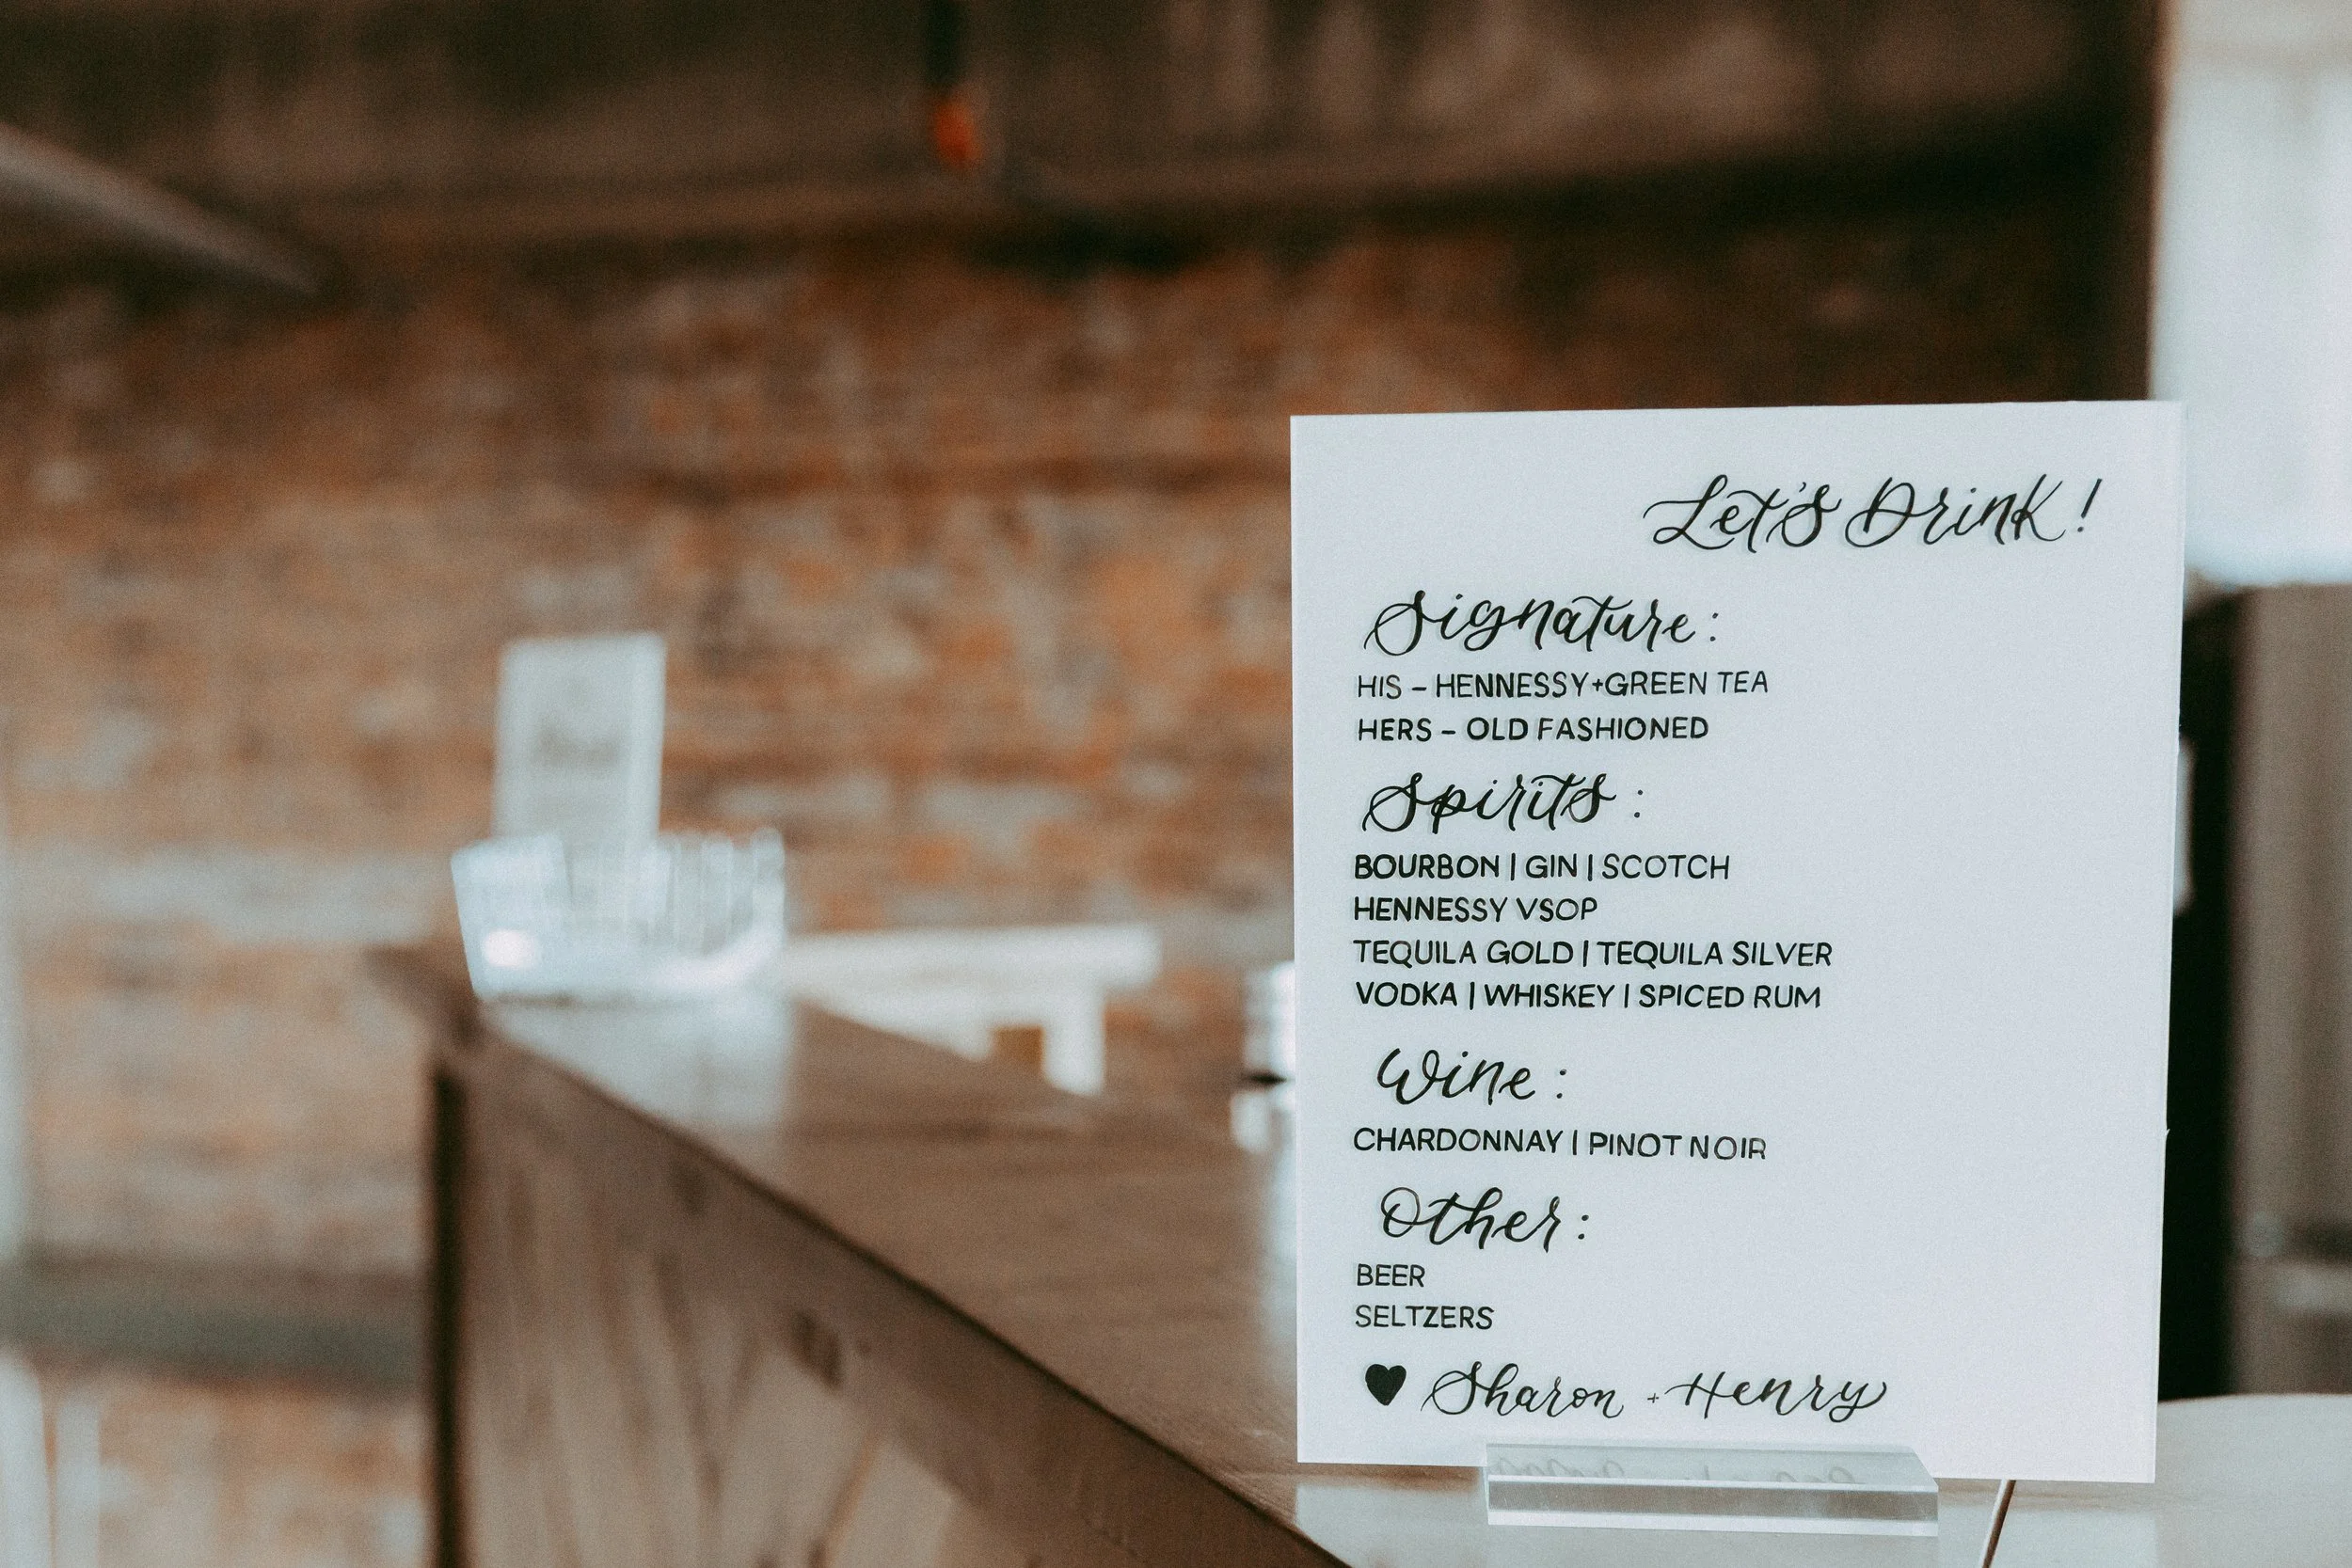 Let's Drink!
Signature:
HIS - HENNESSY+GREEN TEA
HERS - OLD FASHIONED
Spirits:
BOURBON | GIN | SCOTCH
HENNESSY VSOP
TEQUILA GOLD | TEQUILA SILVER
VODKA | WHISKEY | SPICED RUM
Wine:
CHARDONNAY | PINOT NOIR
Other:
BEER
SELTZERS
♥ Sharon + Henry